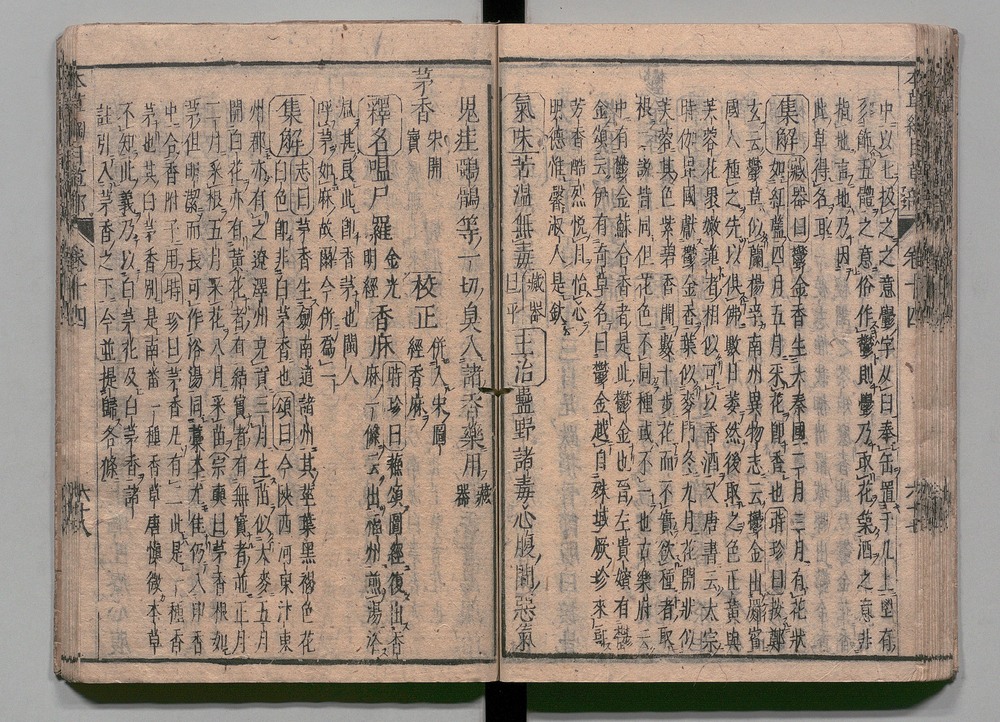 中以七扱之之意鬱字从臼奉缶置于几上鬯有
彡飾五體之意俗作鬱則鬱乃取花築酒之意非
指地言地乃因
此草得名耳
集解 藏器曰鬱金香生大秦國二月三月有花狀
如紅藍四月五月采花即香也 時珍曰按鄭
玄云鬱草似蘭楊孚南州異物志云鬱金出罽賓
國人種之先以供佛數日萎然後取之色正黃與
芙蓉花裹嫩蓮者相似可以香酒又唐書云太宗
時伽毘國獻鬱金香葉似麥門冬九月花開狀似
芙蓉其色紫碧香聞數十步花而不實欲種者取
根二說皆同但花色不同種或不一也古樂府云
中有鬱金蘇合香者是此鬱金也晉左貴嬪有鬱
金頌云伊有奇草名曰鬱金越自殊域厥珍來尋
芳香酷烈悅目怡心
明德惟馨淑人是欽
氣味 苦溫無毒 藏器曰平 主治 蠱野諸毒心腹間惡氣
鬼疰鴉鶻等一切臭入諸香藥用 藏器
茅香 宋開寶
釋名 嗢尸羅 金光明經 香麻 時珍曰蘇頌圖經復出香
麻一條云出福州煎湯浴
風甚良此即香茅也閩人
呼茅如麻故爾今併爲一
校正 併入宋圖經香麻
集解 志曰茅香生劒南道諸州其莖葉黑褐色花
白色即非白茅香也 頌曰 今陝西河東汴東
州郡亦有之遼澤州充貢三月生苗似大麥五月
開白花亦有黃花者有結實者有無實者並正月
二月采根五月采花八月采苗 宗奭曰茅香根如
茅但明潔而長可作浴湯同藁本尤佳仍入印香
中合香附子用 時珍曰茅香凡有二此是一種香
茅也其白茅香別是南番一種香草唐愼微本草
不知此義乃以白茅花及白茅香諸
註引入茅香之下今並提歸各條